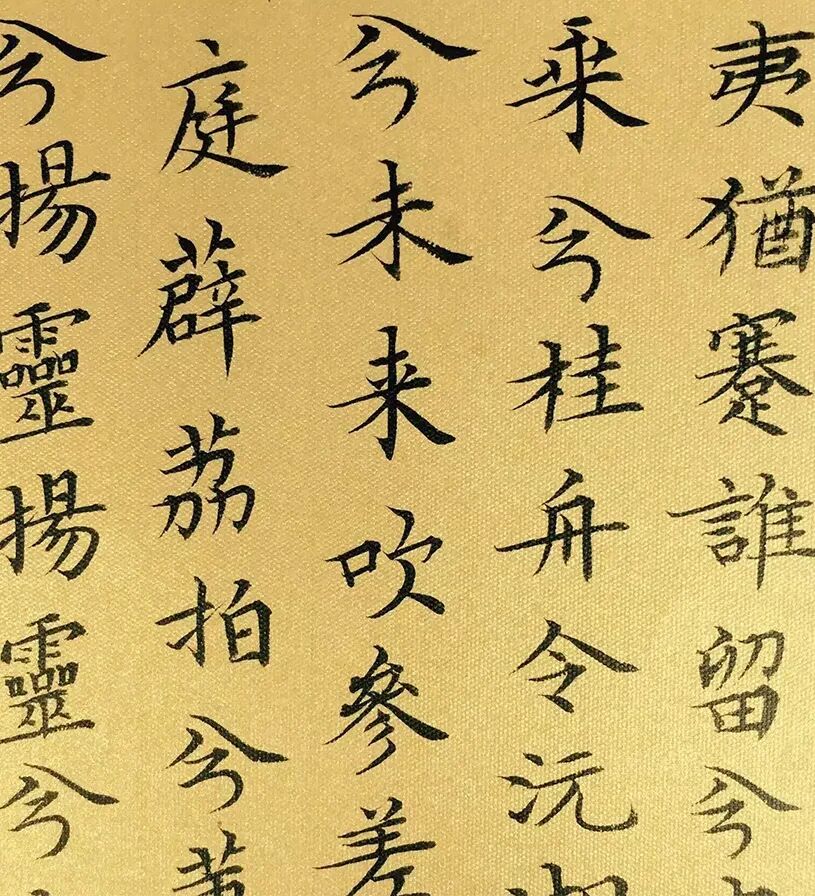 夷猶蹇誰留兮
乘兮桂舟令沅湘
兮未来吹參差
庭薜荔拍兮蕙
兮揚靈揚靈兮